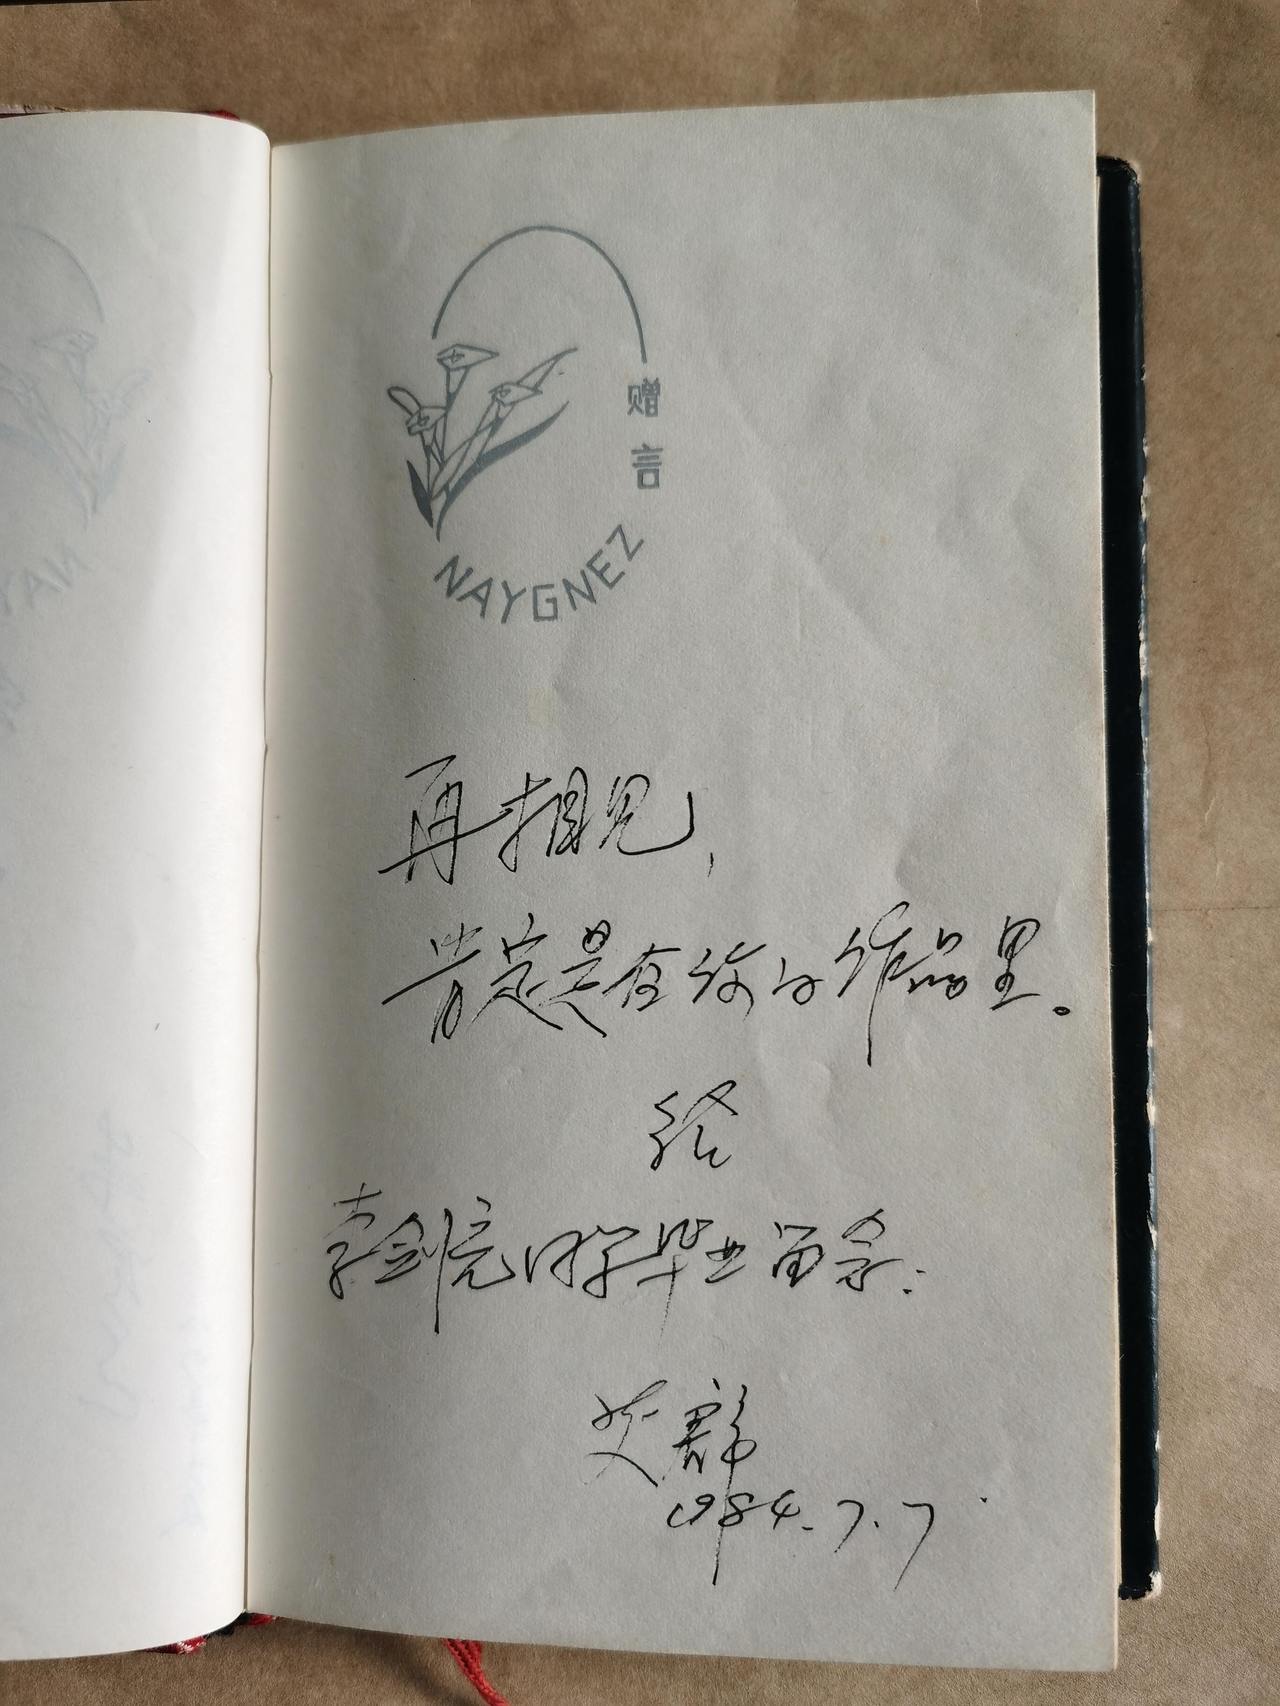 赠言
NAYGNEZ
再相见，
肯定是在你的作品里。
给
李剑亮同学毕业留念.
1984.7.7